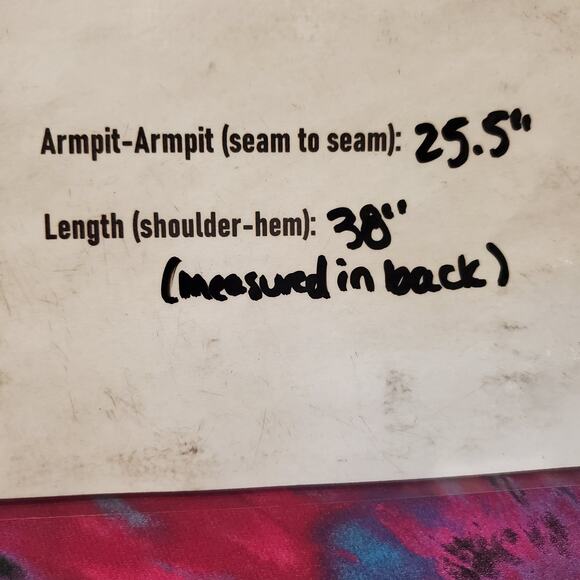 Armpit-Armpit (seam to seam): 25.5"
Length (shoulder-hem): 38"
(measured in back)